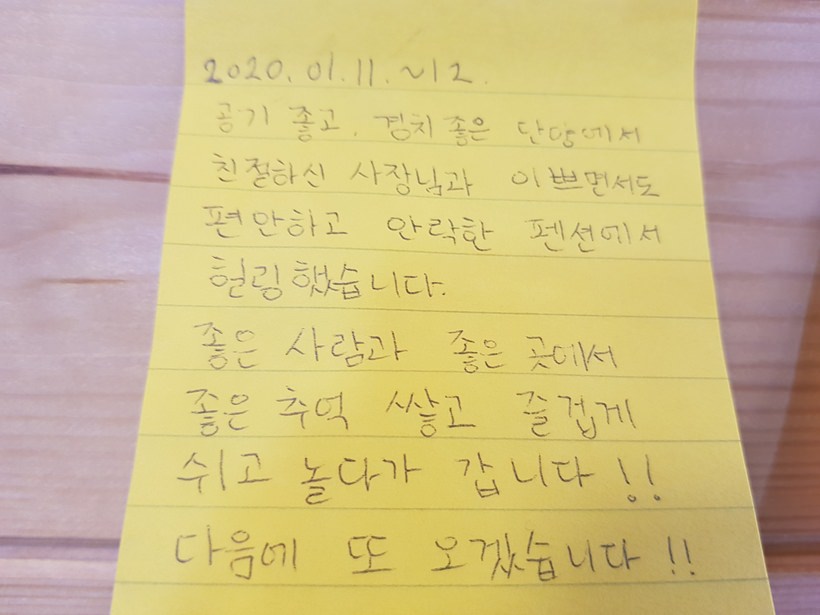 2020. 01. 11. ~12.
공기 좋고, 경치 좋은 단양에서
친절하신 사장님과 이쁘면서도
편안하고 안락한 펜션에서
힐링했습니다.
좋은 사람과 좋은 곳에서
좋은 추억 쌓고 즐겁게
쉬고 놀다가 갑니다!!
다음에 또 오겠습니다!!